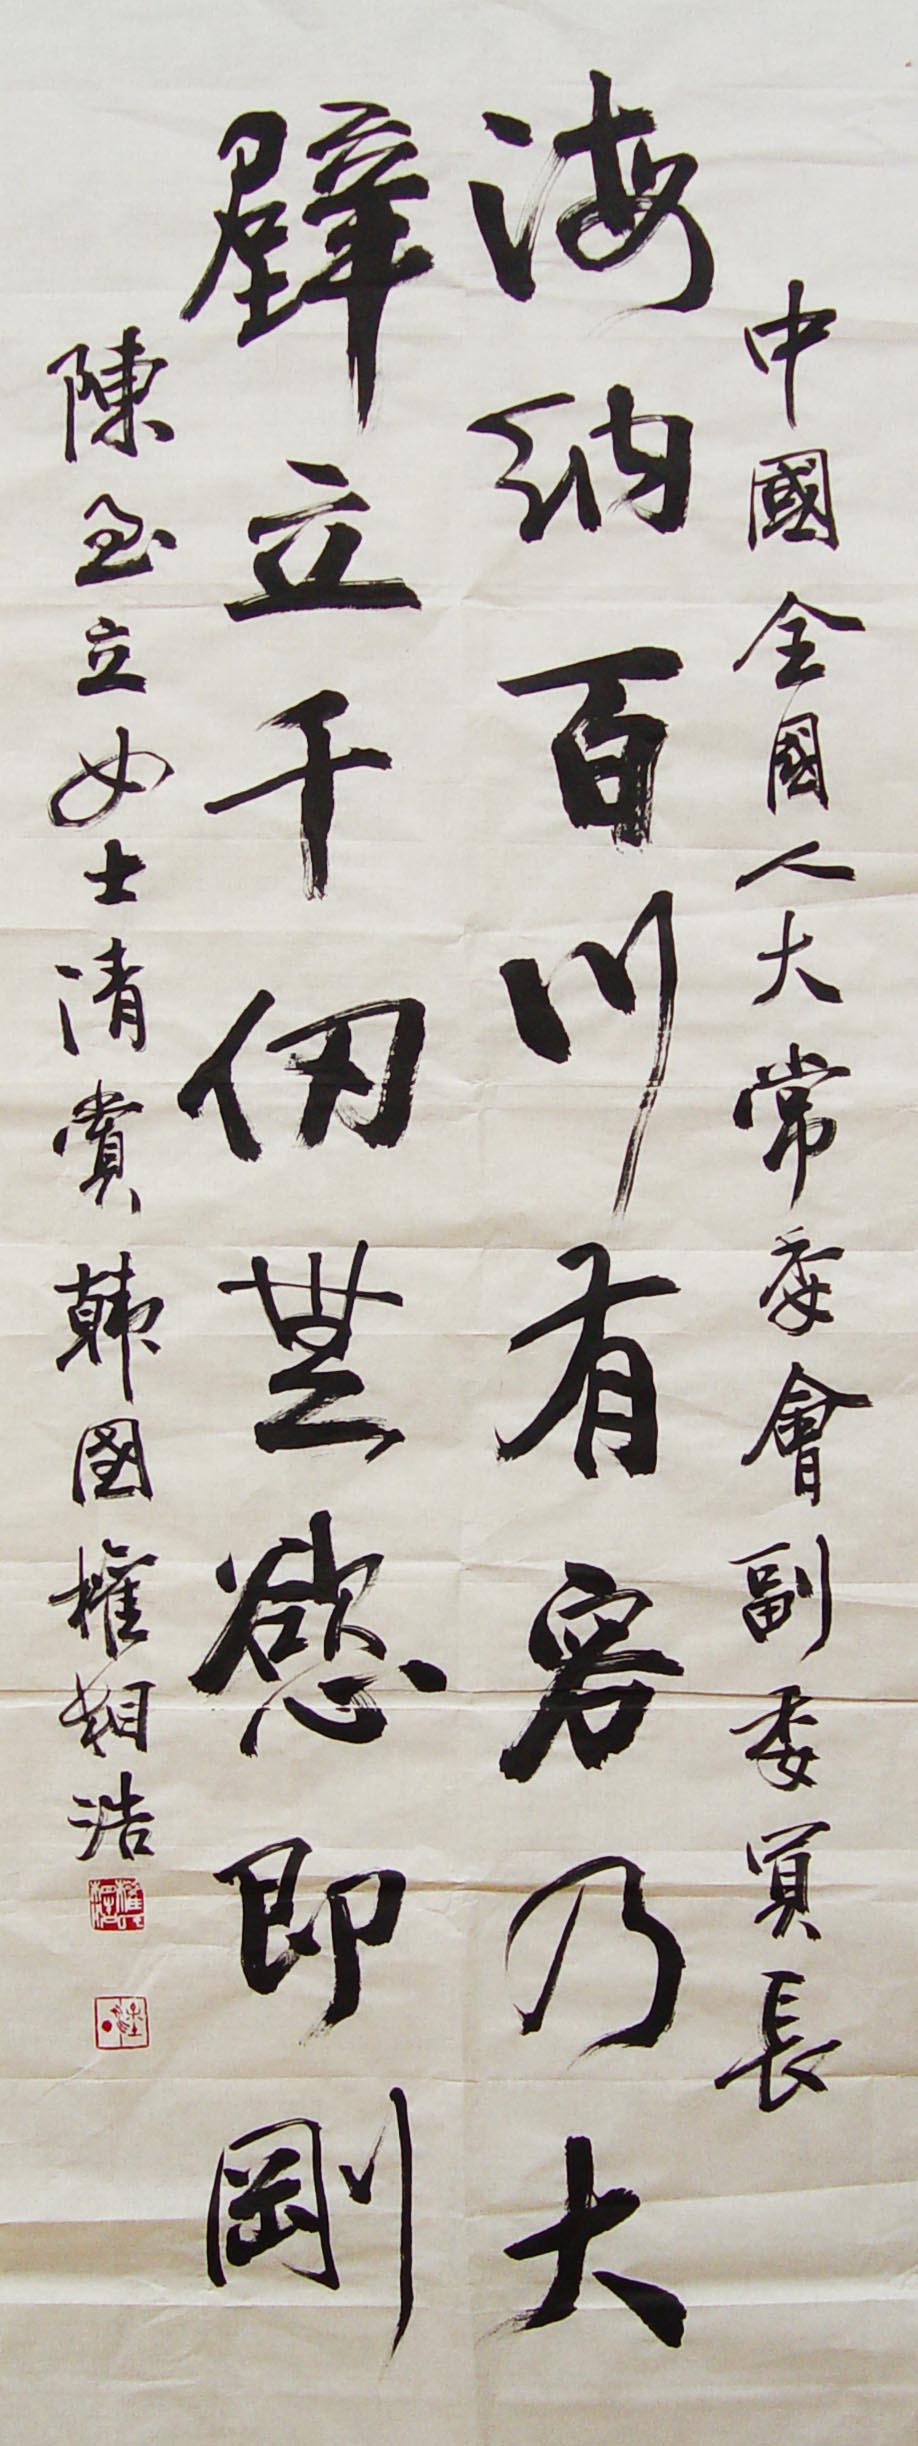 中國全國人大常委會副委員長
海納百川有容乃大
壁立千仞無慾即剛
陳至立女士清賞 韓國權相浩